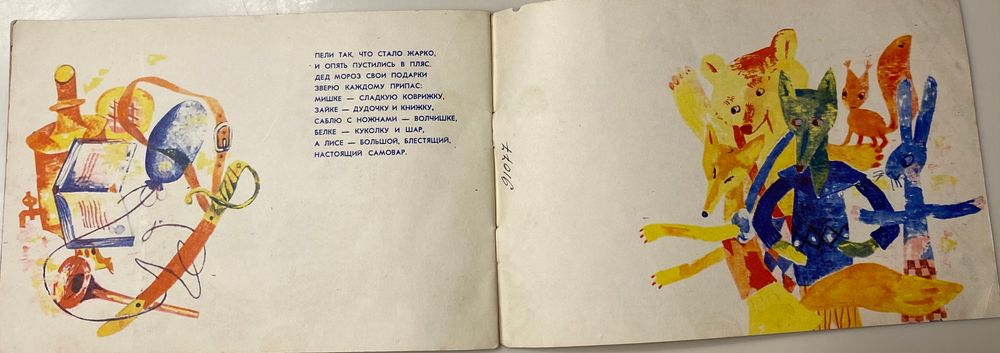 ПЕЛИ ТАК, ЧТО СТАЛО ЖАРКО,
И ОПЯТЬ ПУСТИЛИСЬ В ПЛЯС.
ДЕД МОРОЗ СВОИ ПОДАРКИ
ЗВЕРЮ КАЖДОМУ ПРИПАС:
МИШКЕ — СЛАДКУЮ КОВРИЖКУ,
ЗАЙКЕ — ДУДОЧКУ И КНИЖКУ,
САБЛЮ С НОЖНАМИ — ВОЛЧИШКЕ,
БЕЛКЕ — КУКОЛКУ И ШАР,
А ЛИСЕ — БОЛЬШОЙ, БЛЕСТЯЩИЙ,
НАСТОЯЩИЙ САМОВАР.
91077